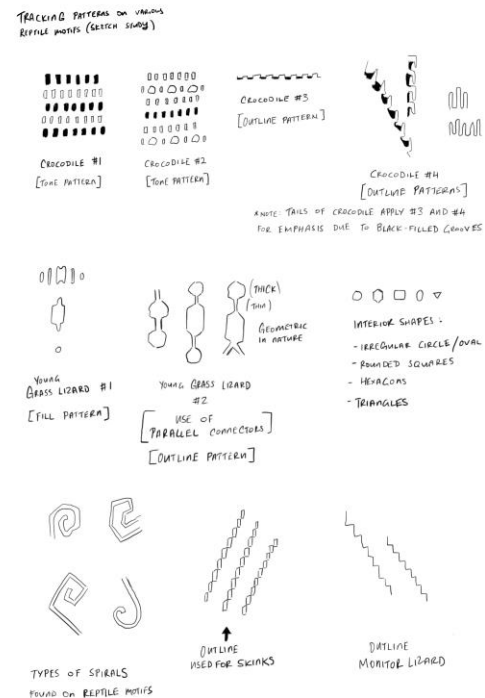 TRACKING PATTERNS ON VARIOUS
REPTILE MOTIFS (SKETCH STUDY)
CROCODILE #1
[TONE PATTERN]
CROCODILE #2
[TONE PATTERN]
CROCODILE #3
[OUTLINE PATTERN]
CROCODILE #4
[OUTLINE PATTERNS]
*NOTE: TAILS OF CROCODILE APPLY #3 AND #4
FOR EMPHASIS DUE TO BLACK-FILLED GROOVES
YOUNG
GRASS LIZARD #1
[FILL PATTERN]
(THICK)
(THIN)
GEOMETRIC
IN NATURE
YOUNG GRASS LIZARD
#2
[USE OF
PARALLEL CONNECTORS]
[OUTLINE PATTERN]
INTERIOR SHAPES:
- IRREGULAR CIRCLE/OVAL
- ROUNDED SQUARES
- HEXAGONS
- TRIANGLES
TYPES OF SPIRALS
FOUND ON REPTILE MOTIFS
OUTLINE
USED FOR SKINKS
OUTLINE
MONITOR LIZARD